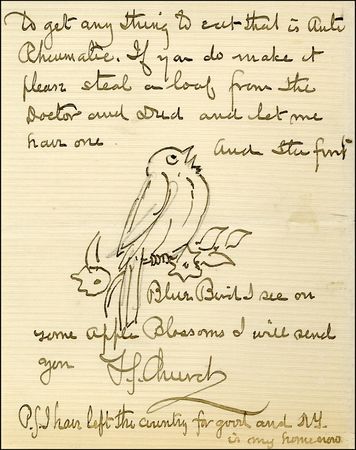 to get any thing to eat that is Anti
Rheumatic. If you do make it
please steal a loaf from the
Doctor and Dred and let me
have one And the first
Blue Bird I see on
some apple Blossoms I will send
you F.S. Church
P.S. I have left the country for good and N.Y.
is my home now